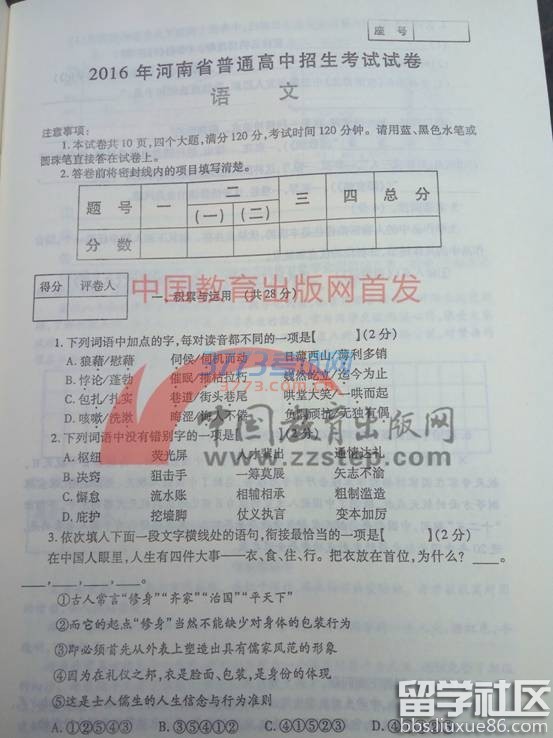 座号
2016年河南省普通高中招生考试试卷
语 文
注意事项:
1.本试卷共10页,四个大题,满分120分,考试时间120分钟。请用蓝、黑色水笔或
圆珠笔直接答在试卷上。
2.答卷前将密封线内的项目填写清楚。
题号 一 二 三 四 总分
(一) (二)
分数
得分 评卷人
中国教育出版网首发
一、积累与运用 (共28分)
1.下列词语中加点的字,每对读音都不同的一项是【 】(2分)
A.狼藉/慰藉 伺候/伺机而动 日薄西山/薄利多销
B.悖论/蓬勃 催眠/摧枯拉朽 巍然屹立/迄今为止
C.包扎/扎实 巷道/街头巷尾 哄堂大笑/一哄而起
D.咳嗽/洗漱 晦涩/诲人不倦 负隅顽抗/无独有偶
3773考试网
3773.com.cn
中国教育出版网
www.zzstep.com
2.下列词语中没有错别字的一项是【 】(2分)
A.枢纽 荧光屏 人才辈出 通情达礼
B.决窍 狙击手 一筹莫展 矢志不渝
C.懈怠 流水账 相辅相承 粗制滥造
D.庇护 挖墙脚 仗义执言 变本加厉
3.依次填入下面一段文字横线处的语句,衔接最恰当的一项是【 】(2分)
在中国人眼里,人生有四件大事——衣、食、住、行。把衣放在首位,为什么? ___。
___,___,___,___。
①古人常言“修身”“齐家”“治国”“平天下”
②而它的起点“修身”当然不能缺少对身体的包装行为
③即必须首先从外表上塑造出具有儒家风范的形象
④因为在礼仪之邦,衣是脸面、包装,是身份的体现
⑤这是士人儒生的人生信念与行为准则
A.①②⑤④③ B.③⑤④①② C.④①⑤②③
留学社区
bbs.liuxue86.com